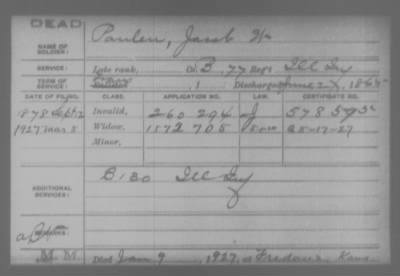 DEAD
NAME OF SOLDIER: Paulen, Jacob W.
SERVICE: Late rank, Co. B, 77 Reg't Ill Inf
TERM OF SERVICE: Enlisted , 1 Discharged June 27, 1865
DATE OF FILING. CLASS. APPLICATION NO. LAW. CERTIFICATE NO.
1878 Sept 2 Invalid, 260 294 578 592
1927 Mar 5 Widow, 1572 705 a 5-17-27
Minor,
ADDITIONAL SERVICES: B 130 Ill Inf
REMARKS:
Died Jan 9, 1927, at Fredonia, Kans